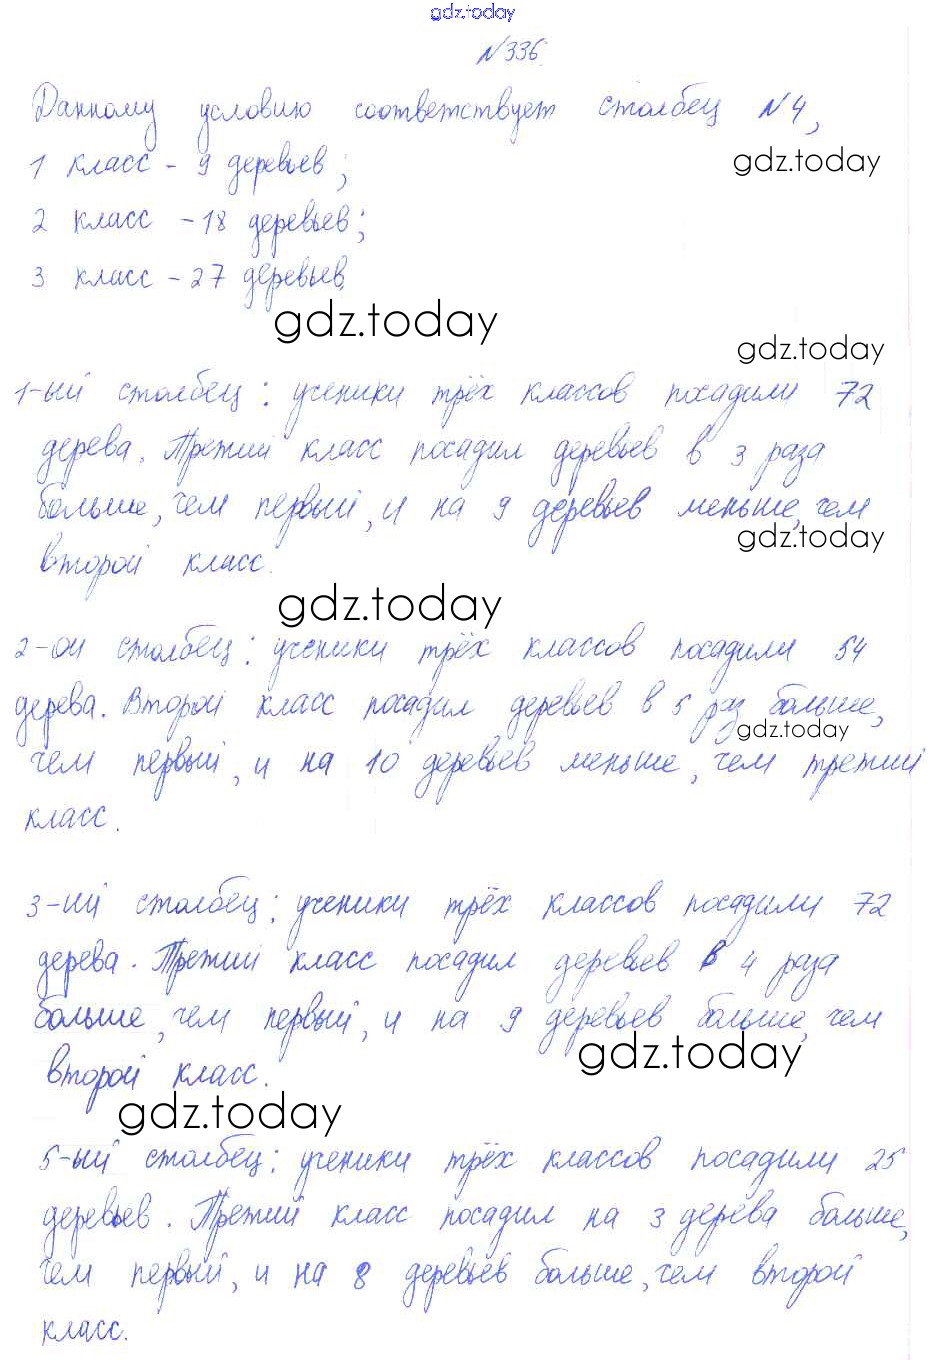 gdz.today
N336.
Данному условию соответствует столбец N4,
gdz.today
1 класс - 9 деревьев;
2 класс - 18 деревьев;
3 класс - 27 деревьев.
gdz.today
gdz.today
1-ый столбец: ученики трёх классов посадили 72
дерева. Третий класс посадил деревьев в 3 раза
больше, чем первый, и на 9 деревьев меньше, чем
gdz.today
второй класс.
gdz.today
2-ой столбец: ученики трёх классов посадили 54
дерева. Второй класс посадил деревьев в 5 раз больше,
gdz.today
чем первый, и на 10 деревьев меньше, чем третий
класс.
3-ий столбец: ученики трёх классов посадили 72
дерева. Третий класс посадил деревьев в 4 раза
больше, чем первый, и на 9 деревьев больше, чем
gdz.today
второй класс.
gdz.today
5-ый столбец: ученики трёх классов посадили 25
деревьев. Третий класс посадил на 3 дерева больше,
чем первый, и на 8 деревьев больше, чем второй
класс.